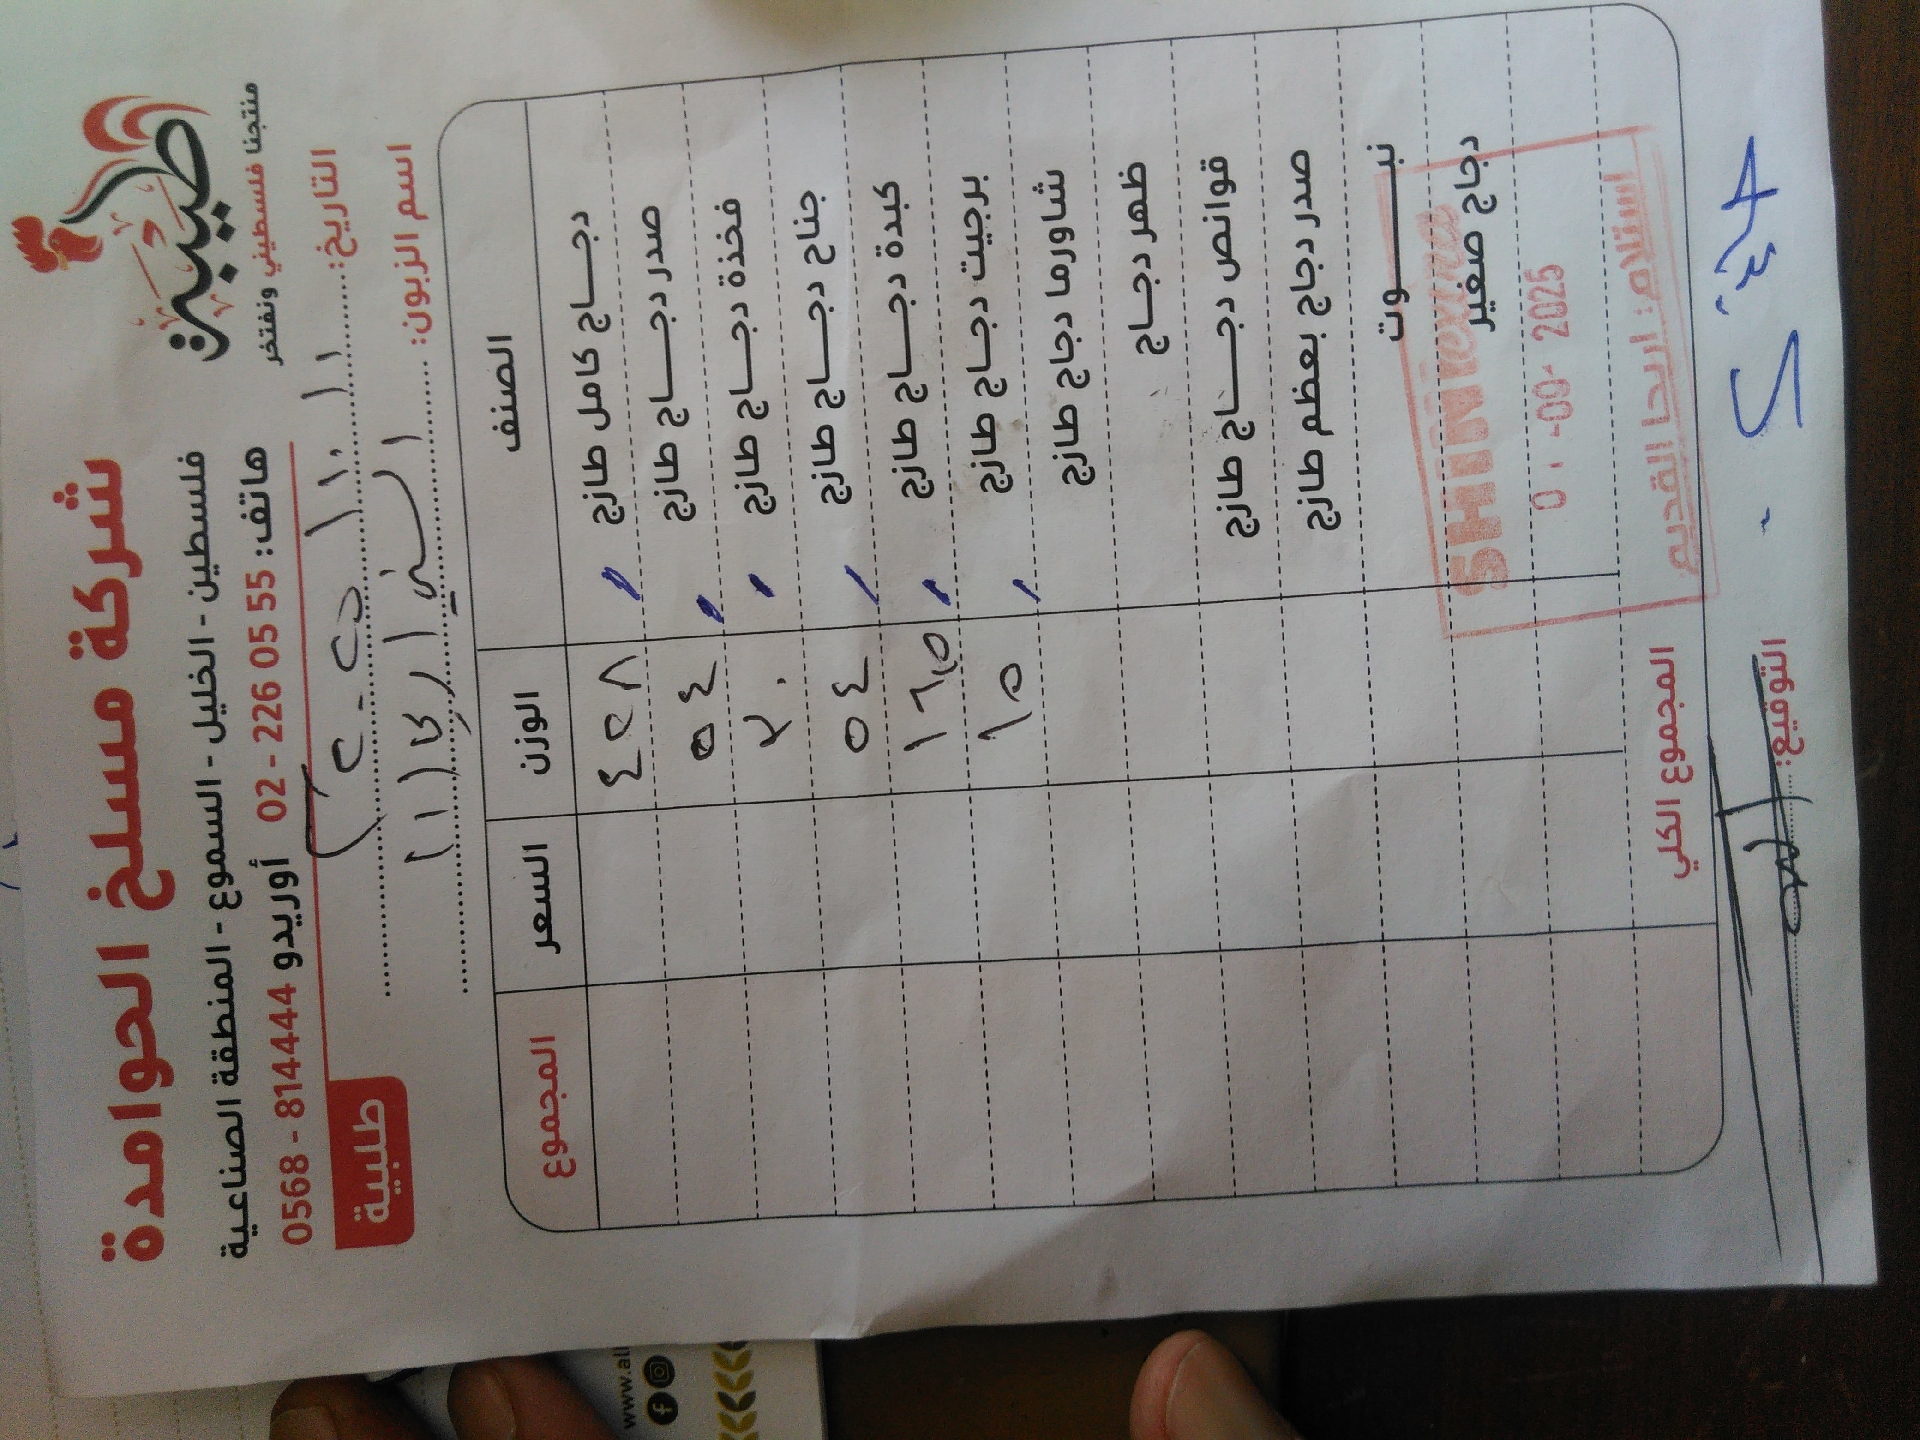 شركة مسلخ الحوامدة
فلسطين - الخليل - السموع - المنطقة الصناعية
هاتف: 55 05 226 - 02 أوريدو 814444 - 0568
طيبة
منتجنا فلسطيني ونفتخر
طلبية
التاريخ:
اسم الزبون:
الصنف الوزن السعر المجموع
دجاج كامل طازج ٤٢٨
صدر دجاج طازج ٥٤
فخذة دجاج طازج ٢٠
جناح دجاج طازج ٥٤
كبدة دجاج طازج ١٦٫٥
برجيت دجاج طازج ١٥
شاورما دجاج طازج
ظهر دجاج
قوانص دجاج طازج
صدر دجاج بعظم طازج
نبوت
دجاج صغير
SHINI
2025
استلام: اريحا القديم
المجموع الكلي
التوقيع:
www.al